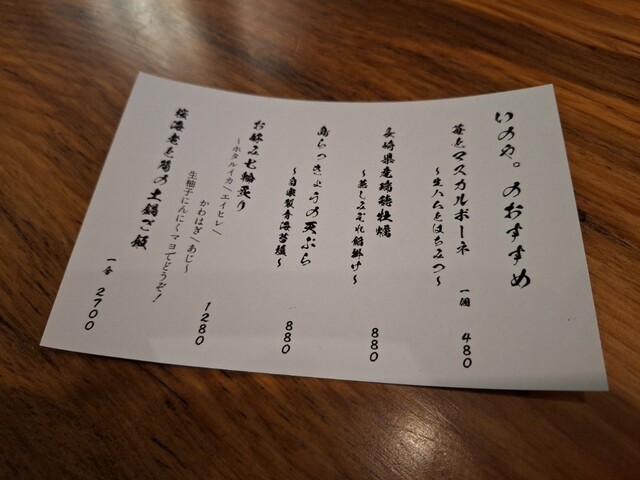 いのや。のおすすめ
苺とマスカルポーネ 一個 480
~生ハムとはちみつ~
長崎県産瑞穂牡蠣 880
~蒸しみぞれ餡掛け~
島らっきょうの天ぷら 880
~自家製青海苔塩~
お好み七輪炙り 1280
~ホタルイカ/エイヒレ/
かわはぎ/あじ~
生柚子にんにくマヨでどうぞ!
桜海老と筍の土鍋ご飯 一合 2700